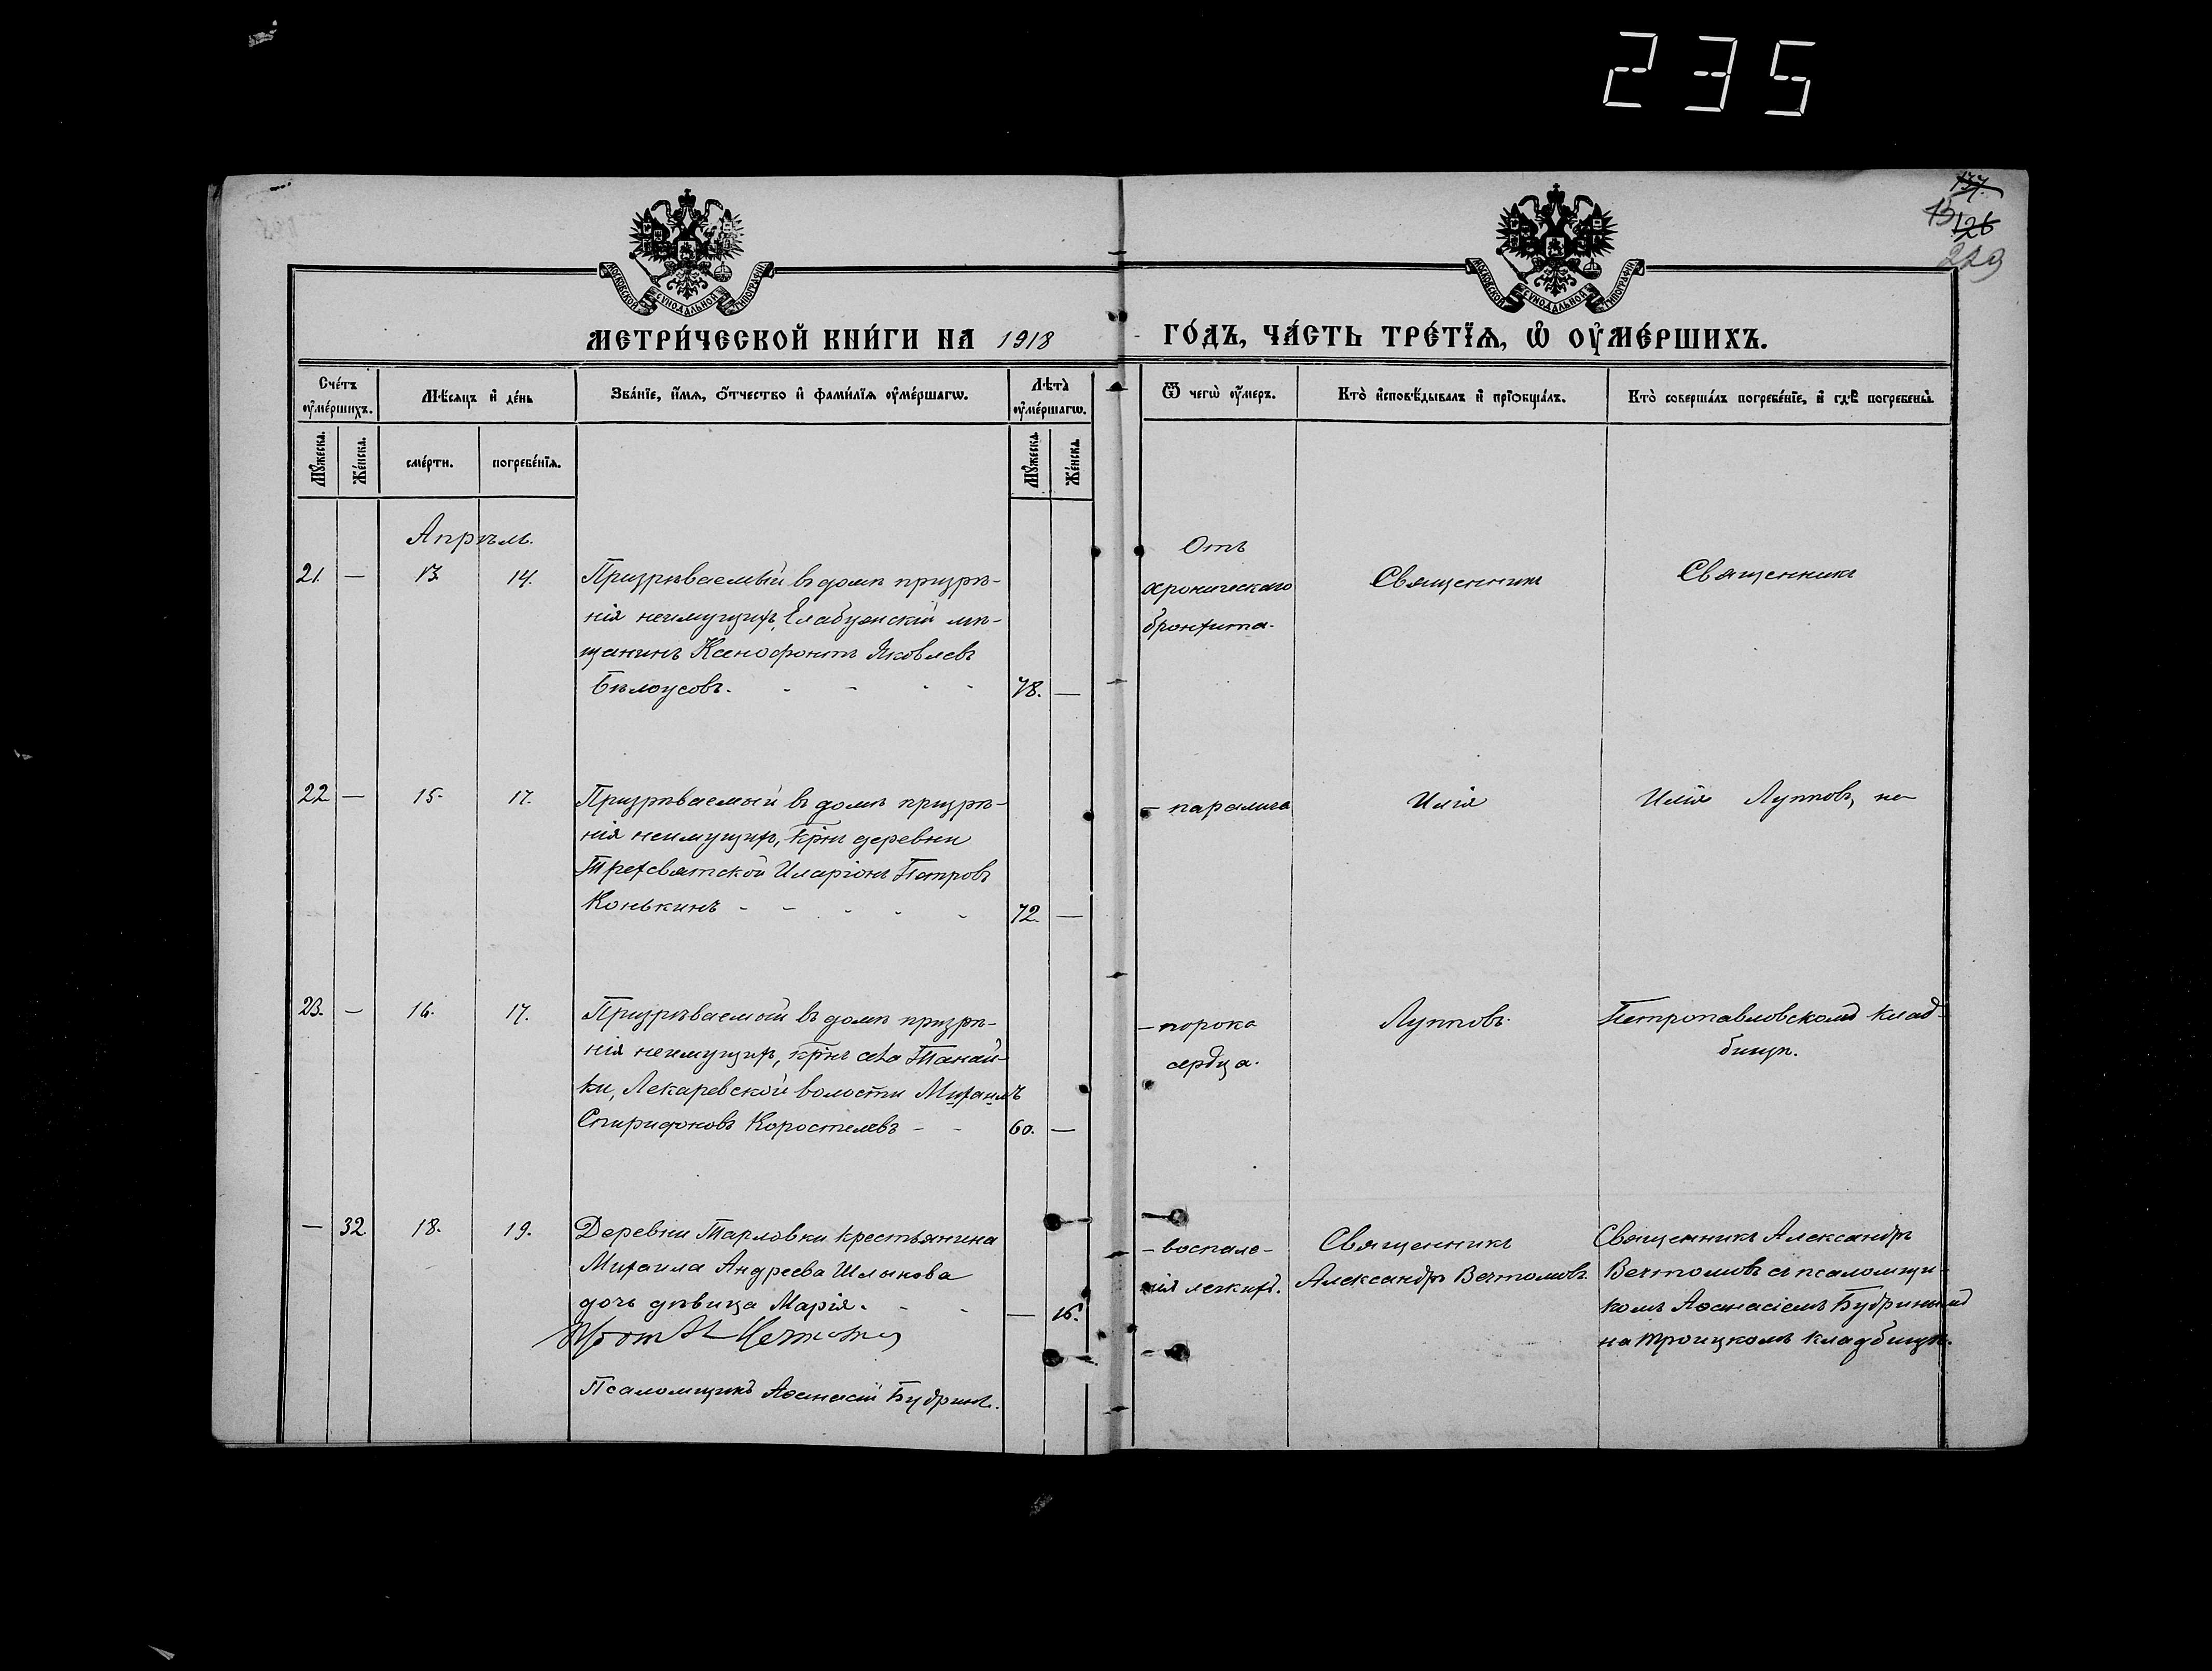 235
137.
13
126
229
МОСКОВСКОЙ СѴНОДАЛЬНОЙ ТИПОГРАФІИ
МОСКОВСКОЙ СѴНОДАЛЬНОЙ ТИПОГРАФІИ
МЕТРИ́ЧЕСКОЙ КНИ́ГИ НА 1918 ГО́ДЪ, ЧА́СТЬ ТРЕ́ТЇѦ, Ѡ҆ ОУ҆МЕ́РШИХЪ.
Сче́тъ оу҆ме́ршихъ.
Мѣ́сяцъ и҆ де́нь
Зва́нїе, и҆́мѧ, ѻ҆́тчество и҆ фами́лїѧ оу҆ме́ршагѡ.
Лѣта̀ оу҆ме́ршагѡ.
Ѿ чегѡ̀ оу҆́меръ.
Кто̀ и҆сповѣ́дывалъ и҆ прїѡбща́лъ.
Кто̀ соверша́лъ погребе́нїе, и҆ гдѣ̀ погребены̀.
Мꙋ́жеска.
Же́нска.
сме́рти.
погребе́нїѧ.
Мꙋ́жеска.
Же́нска.
Апрѣль.
21. — 13. 14. Призрѣваемый въ домѣ призрѣ-
нія неимущихъ, Елабужскій мѣ-
щанинъ Ксенофонтъ Яковлевъ
Бѣлоусовъ. 78. —
Отъ
хроническаго
бронхита.
Священникъ
Священникъ
22 — 15. 17. Призрѣваемый въ домѣ призрѣ-
нія неимущихъ, крнъ деревни
Трехсвятской Иларіонъ Петровъ
Конькинъ 72. —
— паралича
Илія
Илія Лупповъ, на
23. — 16. 17. Призрѣваемый въ домѣ призрѣ-
нія неимущихъ, крнъ села Танай-
ки, Лекаревской волости Михаилъ
Спиридоновъ Коростелевъ 60. —
— порока
сердца.
Лупповъ.
Петропавловскомъ клад-
бищѣ.
— 32 18. 19. Деревни Тарловки крестьянина
Михаила Андреева Шлыкова
дочь дѣвица Марія. — 16.
— воспале-
нія легкихъ.
Священникъ
Александръ Вечтомовъ.
Священникъ Александръ
Вечтомовъ съ псаломщи-
комъ Аѳанасіемъ Будринымъ
на Троицкомъ кладбищѣ.
Псаломщикъ Аѳанасій Будринъ.